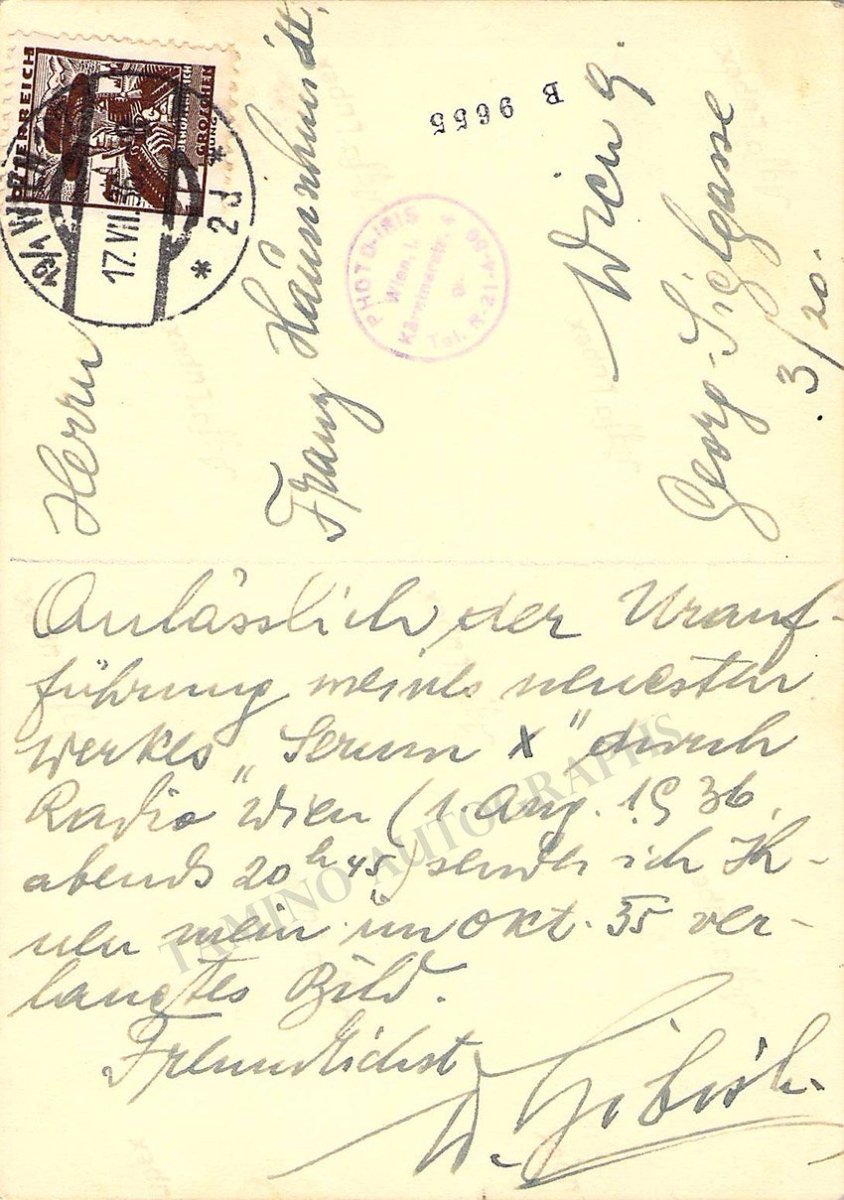 ÖSTERREICH
GROSCHEN
19/1 WIEN
17.VII.36
* 2d *
B 9655
PHOTO-IRIS
Wien, I.
Kärntnerstr.
Tel. R-21-4-
Herrn
Franz
Wien 9.
Georg-Siglgasse
3/20.
Anlässlich der Urauf-
führung meines neuesten
Werkes „Serum X" durch
Radio Wien (1. Aug. 1936,
abends 20h45) sende ich Ih-
nen mein im Okt. 35 ver-
langtes Bild.
Freundlichst
TAMINO AUTOGRAPHS